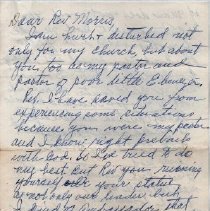 Dear Rev Morris,
I am hurt & disturbed not
only for my church, but about
you too as my pastor and
pastor of poor little Ebenezer.
Rev. I have saved you from
experiencing some
because you were my pastor
and I know might prevail
with God. So I've tried to do
my best. But Rev you
yourself your status
as not only our leader but
that